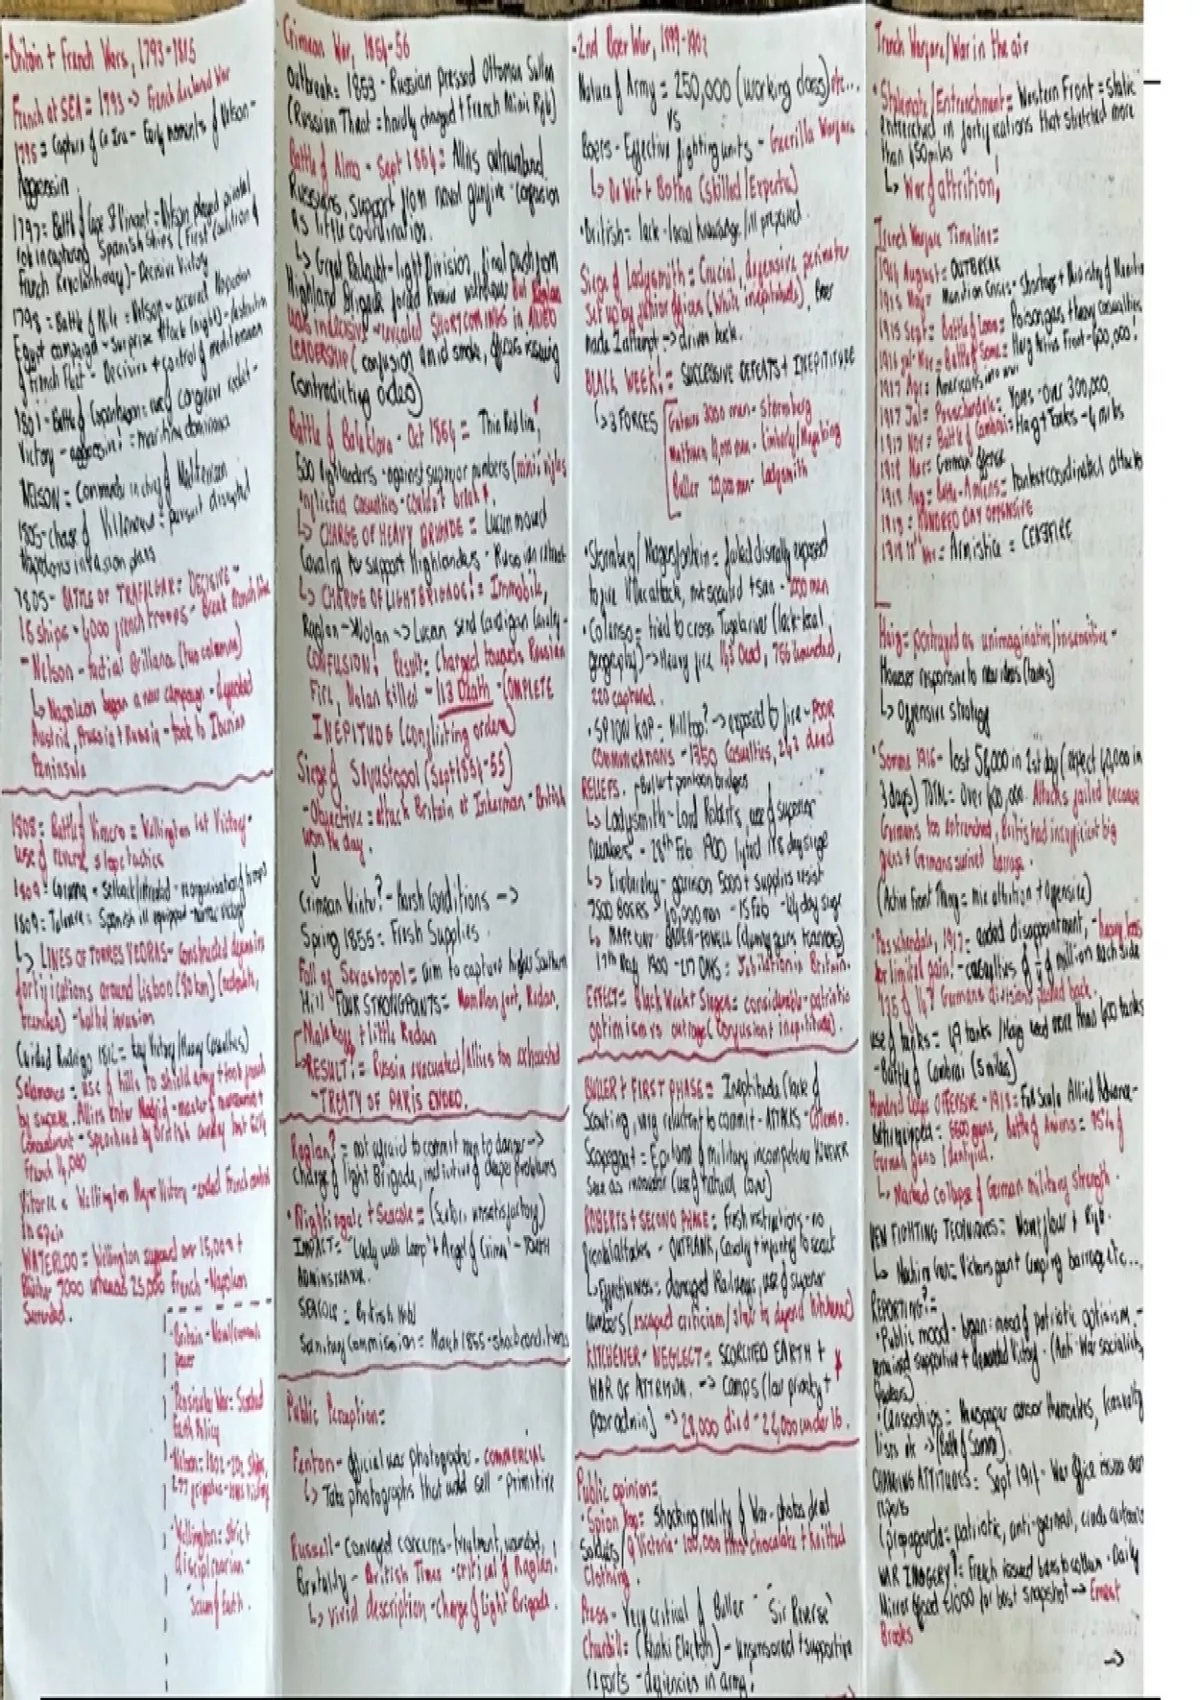 -Britain + French Wars, 1793-1815
French at SEA = 1793 -> French declared War
1795 = Capture of Ca Ira - Early moments of Nelson -
Aggression
1797 = Battle of Cape St Vincent = Nelson played pivotal
role in capturing Spanish ships (First Coalition of
French Revolutionary) - Decisive Victory
1798 = Battle of Nile = Nelson -
Egypt campaign - surprise attack (night) - destruction
of French Fleet - Decisive + control of mediterranean
1801 - Battle of Copenhagen =
Victory - aggressive! = maritime dominance
NELSON = Commander in chief of
1805 - chase of Villeneuve = pursuit disrupted
invasion plans
1805 - BATTLE OF TRAFALGAR = DECISIVE -
16 ships + 4,000 french troops - Break French line
- Nelson - tactical Brilliance (two columns)
↳ Napoleon began a new campaign - defeated
Austria, Prussia + Russia - took to Iberian
Peninsula
1808 = Battle of Vimeiro = Wellington 1st Victory -
use of reverse slope tactics
1809 = Corunna = - reorganisation of troops
1809 = Talavera = Spanish ill equipped -
↳ LINES OF TORRES VEDRAS - constructed defensive
fortifications around Lisbon (50km) (redoubts,
trenches) - halted invasion
Ciudad Rodrigo 1812 = key Victory (Heavy Casualties)
Salamanca = use of hills to shield army + took french
by suprise. Allies enter Madrid -
- Spearhead by British cavalry
French 14,000
Vitoria = Wellington Major Victory - ended French control
In spain
WATERLOO = Wellington suffered over 15,000 +
Blücher 7000 whereas 25,000 French - Napoleon
Surrended.
Britain - Naval/
power
Peninsular War = Scorched
Earth Policy
Nelson = 1802 - 202 ships,
277 frigates -
Wellington = Strict
disciplinarian -
'Scum of Earth.
Crimean War, 1854-56
Outbreak = 1853 - Russian pressed Ottoman Sultan
(Russian Threat = hardly changed + French Minié Rifle)
Battle of Alma - Sept 1854 = Allies outnumbered
Russians, support from naval gunfire - confusion
as little coordination.
↳ Great Redoubt - light Division, final push from
Highland Brigade forced Russian withdraw but Raglan
was indecisive - revealed SHORTCOMINGS in ALLIED
LEADERSHIP (confusion amid smoke, officers issuing
contradicting orders)
Battle of Balaklava - Oct 1854 = Thin Red line,
500 Highlanders - against superior numbers (minié rifles
inflicted casualties - couldn't break.
↳ CHARGE OF HEAVY BRIGADE = Lucan moved
Cavalry to support Highlanders - Russian retreat
↳ CHARGE OF LIGHT BRIGADE! = Immobile,
Raglan -> Nolan -> Lucan send Cardigan Cavalry -
CONFUSION! Result: Charged towards Russian
Fire, Nolan killed - 118 Death - COMPLETE
INEPITUDE (conflicting orders)
Siege of Sevastopol (Sept 1854-55)
- Objective = attack Britain at Inkerman - British
won the day.
↓
Crimean Winter? - Harsh Conditions ->
Spring 1855 = Fresh Supplies
Fall of Sevastopol = aim to capture higher Southern
Hill FOUR STRONGPOINTS = Mamelon fort, Redan,
Malakoff + little Redan
RESULT! = Russia evacuated/Allies too exhausted
- TREATY OF PARIS ENDED.
Raglan? = not afraid to commit men to danger ->
Charge of light Brigade, indicitive of deeper problems
• Nightingale + Seacole = (Scutari unsatisfactory)
IMPACT: "Lady with Lamp" + Angel of Crimea" -
ADMINISTRATOR.
SEACOLE = British Hotel
Sanitary Commission = March 1855 - conditions
Public Perception =
Fenton - official war photographer - COMMERCIAL
↳ Take photographs that would sell - primitive
Russell - Conveyed concerns - treatment, wounded,
Brutality - British Times - critical of Raglan!
↳ vivid description - Charge of Light Brigade.
-2nd Boer War, 1899-1902
Nature of Army = 250,000 (working class) etc...
VS
Boers - Effective fighting units - Guerilla Warfare
↳ De Wet + Botha (skilled/Experts)
• British = lack - local knowledge/ill prepared
Siege of Ladysmith = Crucial, defensive perimeter
Set up by junior officers (White ineptitude). Boer
made 2 attempt -> driven back.
BLACK WEEK! = SUCCESSIVE DEFEATS + INEPITUDE
↳ 3 FORCES
Gatacre 3000 men - Stormberg
Methuen 8,000 men - Kimberley/
Buller 20,000 men - Ladysmith
• Stormberg/Magersfontein = failed dismally exposed
to fire, not scouted
• Colenso = tried to cross Tugela river (lack local
geography) -> Heavy fire 143 Dead, 756 Wounded,
220 captured.
• SPION KOP = Hilltop? -> exposed to fire - POOR
COMMUNICATIONS - 1350 Casualties, 243 dead
RELIEFS. - Buller + pontoon bridges
↳ Ladysmith - Lord Roberts use of superior
numbers - 28th Feb 1900 lifted 118 day siege
↳ Kimberley - garrison 5000 + supplies resist
7500 BOERS - 15 Feb - 124 day siege
↳ MAFEKING - BADEN-POWELL (dummy guns trenches)
17th May 1900 - 217 DAYS = Jubilation in Britain.
EFFECT = Black Week + Sieges = considerable - patriotic
optimism vs outrage (confusion + ineptitude).
BULLER + FIRST PHASE = Ineptitude (lack of
Scouting, very reluctant to commit - ATTACKS - Colenso.
Scapegoat = Epitome of military incompetence HOWEVER
Seen as innovator (use of natural cover)
ROBERTS + SECOND PHASE = Fresh instructions - no
frontal attacks - OUTFLANK, Cavalry + infantry to scout
↳ Effectiveness = damaged Railways, use of superior
numbers (escaped criticism/
KITCHENER - NEGLECT = SCORCHED EARTH +
WAR OF ATTRITION. -> Camps (low priority +
poor admin) -> 28,000 died - 22,000 under 16.
Public opinion =
• Spion Kop = Shocking reality of War - photos dead
Soldiers / Q Victoria - 100,000 tins chocolate + Knitted
Clothing.
Press - Very critical of Buller - "Sir Reverse"
Churchill = (Khaki Election) - uncensored + supportive
reports - deficiencies in army!
Trench Warfare/War in the air
• Stalemate/Entrenchment = Western Front = Static
entrenched in fortifications that stretched more
than 450 miles
↳ War of attrition!
Trench Warfare Timeline =
1914 August = OUTBREAK
1915 May = Munition Crisis - Shortage + Ministry of Munitions
1915 Sept = Battle of Loos = Poison gas, heavy casualties
1916 Jul-Nov = Battle of Somme = Haig - 600,000!
1917 Apr = Americans
1917 Jul = Passchendaele = Ypres - Over 300,000
1917 Nov = Battle of Cambrai = Haig + Tanks - 4 miles
1918 Mar = German offense
1918 Aug = Battle-Amiens = Tanks + coordinated attacks
1918 = HUNDRED DAY OFFENSIVE
1918 11th Nov = Armistice = CEASEFIRE
Haig = portrayed as unimaginative/insensitive -
However responsive to new ideas (tanks)
↳ offensive strategy
• Somme 1916 - lost 56,000 in 1st day (expect 40,000 in
3 days) TOTAL = Over 600,000 - Attacks failed because
Germans too entrenched, British had insufficient big
guns + Germans survived barrage.
(Active Front Thing = mix attrition + offensive)
Passchendaele, 1917 = ended disappointment, - heavy loss
for limited gain! - casualties of million each side
German divisions back.
use of tanks = 49 tanks / Haig used more than 400 tanks
- Battle of Cambrai (5 miles)
Hundred Days OFFENSIVE - 1918 = Full Scale Allied Advance -
Better equipped = 6600 guns, Battle of Amiens = 95% of
German guns identified.
↳ Marked collapse of German military strength.
NEW FIGHTING TECHNIQUES:
↳ Machine Guns = Vickers gun + Creeping barrage etc...
REPORTING? =
• Public mood - began = mood of patriotic optimism -
remained supportive + demanded Victory - (Anti-War socialists,
Quakers)
• Censorships = Newspaper censor themselves, (casualty
lists etc -> [Battle of Somme].
CHANGING ATTITUDES = Sept 1914 - War Office issued own
reports
(propaganda = patriotic, anti-german,
WAR IMAGERY? = French issued - Daily
Mirror offered £1000 for best snapshot -> Ernest
Brooks
->